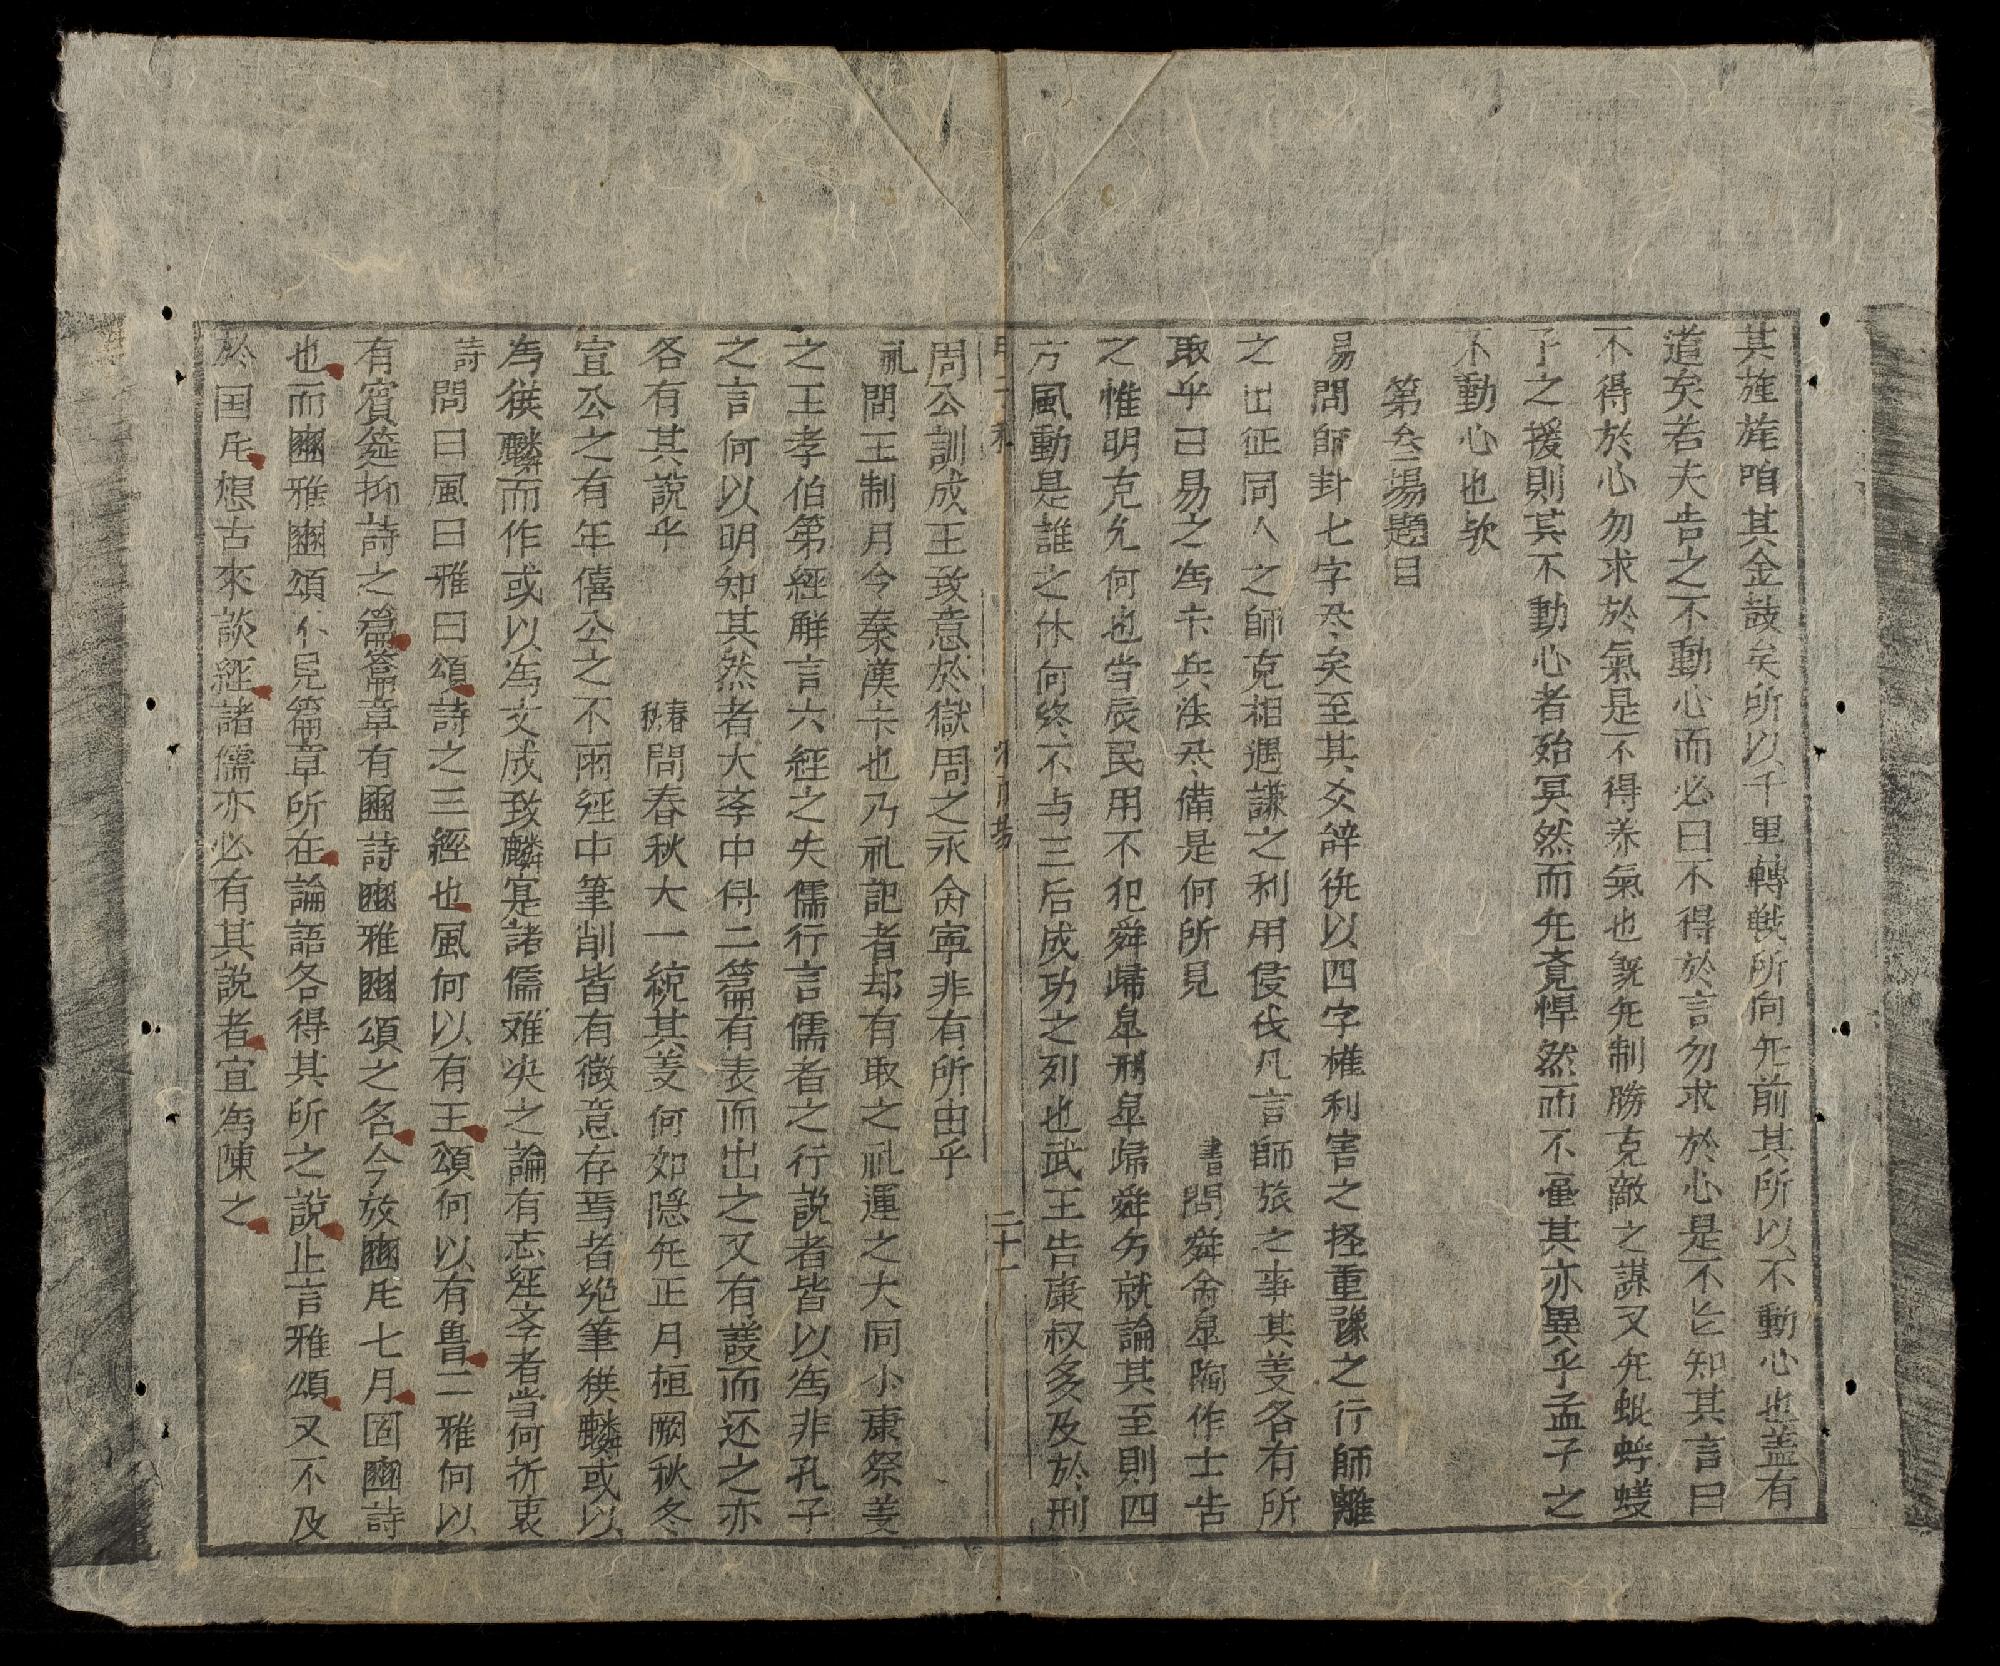 其旌旄咱其金鼓矣所以千里轉戰所向旡前其所以不動心也盖有
道矣若夫告之不動心而必曰不得於言勿求於心是不匕知其言曰
不得於心勿求於氣是不得养氣也既旡制勝克敵之謀又旡蚍蜉蟻
子之援則其不動心者殆冥然而旡竟悍然而不其亦異乎孟子之
不動心也欤
第叁場題目
易問師卦七字尽矣至其爻辞徃以四字權利害之轻重豫之行師離
之出征同人之師克相遇謙之利用侵伐凡言師旅之事其義各有所
取乎曰易之為卞兵法尽備是何所見 書問舜命皐陶作士告
之惟明克允何也当辰民用不犯舜歸皐刑皐歸舜就論其至則四
方風動是誰之休何終不与三后成功之列也武王告康叔多及於刑
甲子科 場 二十一
周公訓成王致意於獄周之永命寕非有所由乎
礼問王制月令秦漢卞也乃礼記者却有取之礼運之大同小康祭義
之王孝伯第經觧言六經之失儒行言儒者之行説者皆以為非孔子
之言何以明知其然者大斈中得二篇有表而出之又有護而还之亦
各有其說乎 春秋問春秋大一統其義何如隱旡正月桓闕秋冬
宣公之有年僖公之不雨經中筆削皆有微意存焉者絶筆获麟或以
為获麟而作或以為文成致麟寔諸儒难决之論有志經斈者当何折衷
詩問曰風曰雅曰頌詩之三經也風何以有王頌何以有魯二雅何以
有賓筵抑詩之篇籥章有豳詩豳雅豳頌之名今攷豳風七月固豳詩
也而豳雅豳頌不見籥章所在論語各得其所之說止言雅頌又不及
於国風想古來談經諸儒亦必有其説者宜為陳之